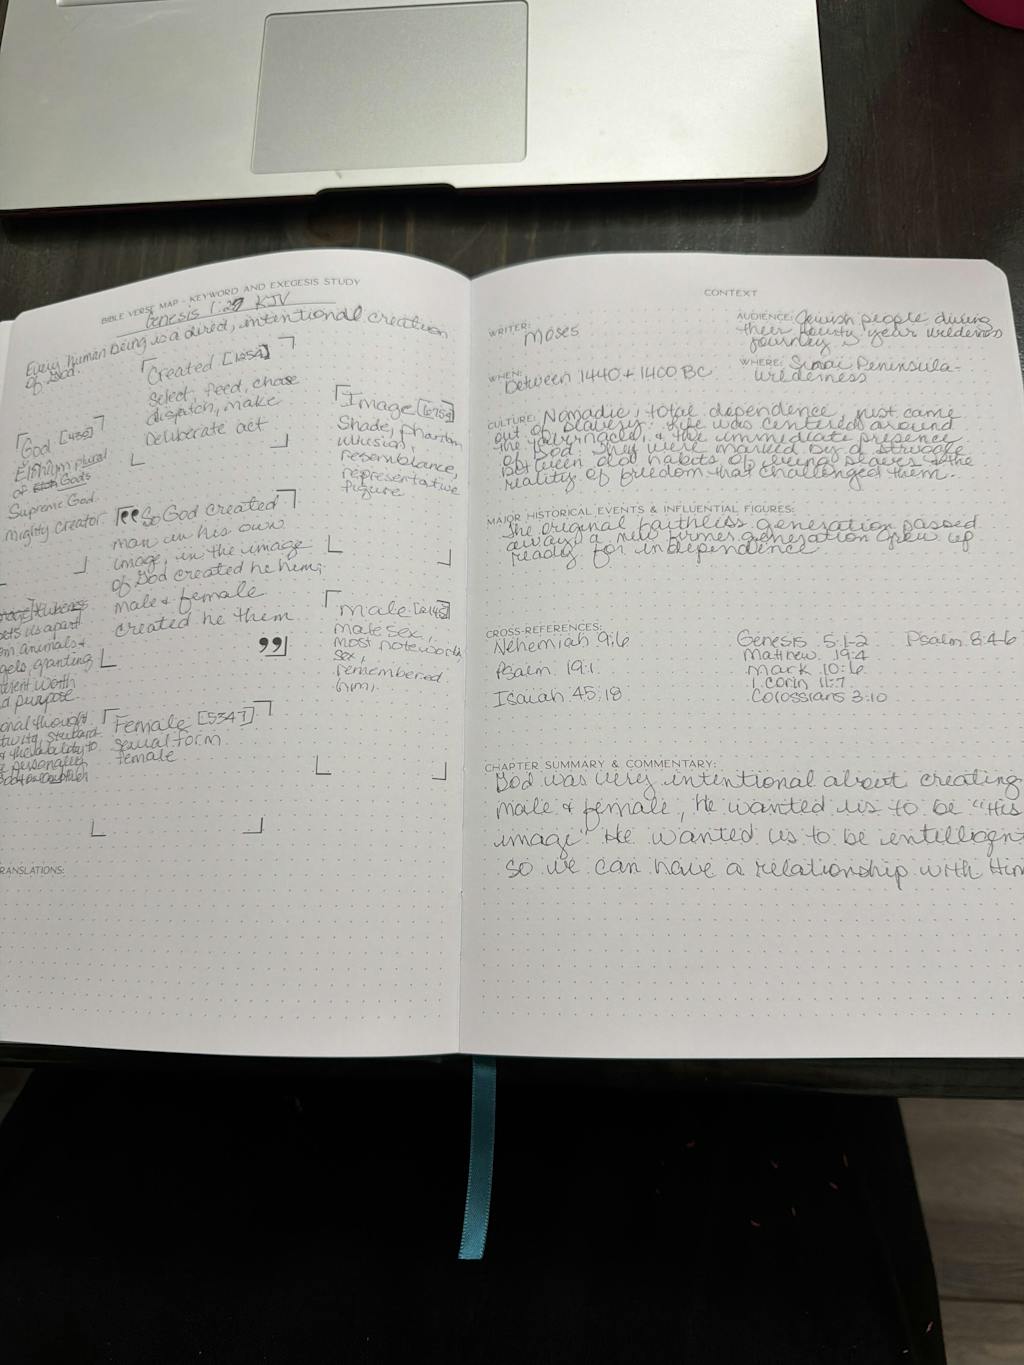 BIBLE VERSE MAP - KEYWORD AND EXEGESIS STUDY
Genesis 1:27 KJV
Every human being is a direct, intentional creation
of God.
Created [1254]
Select, feed, chose
dispatch, make
Deliberate act
God [430]
plural
of Gods
Supreme God
Mighty Creator
Image [6754]
Shade, phantom
illusion,
resemblance,
representative
figure
"So God created
man in his own
image, in the image
of God created he him;
male & female
created he them"
male [2145]
male sex,
most notewort
sex,
remembered
him,
sets us apart
om animals &
gels, granting
erent worth
d purpose.
onal thought
& the ability to
Female [5347]
sexual form
female
RANSLATIONS:
CONTEXT
WRITER: Moses
AUDIENCE: Jewish people during
their fourty year wilderness
journey
WHEN: Between 1440 + 1400 BC
WHERE: Sinai Peninsula-
wilderness
CULTURE: Nomadic, total dependence, just came
out of slavery. Life was centered around
the tabernacle, & the immediate presence
of God. They were marked by a struggle
between old habits of being slaves & the
reality of freedom that challenged them.
MAJOR HISTORICAL EVENTS & INFLUENTIAL FIGURES:
The original faithless generation passed
away, a new firmer generation grew up
ready for independence
CROSS-REFERENCES:
Nehemiah 9:6
Psalm 19:1
Isaiah 45:18
Genesis 5:1-2
Matthew 19:4
Mark 10:6
1 Corin 11:7
Colossians 3:10
Psalm 8:4-6
CHAPTER SUMMARY & COMMENTARY:
God was very intentional about creating
male & female, He wanted us to be "His
image" He wanted us to be intelligent
so we can have a relationship with Him